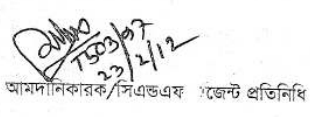 T503/97
23/2/12
আমদানিকারক/সিএন্ডএফ জেন্ট প্রতিনিধি